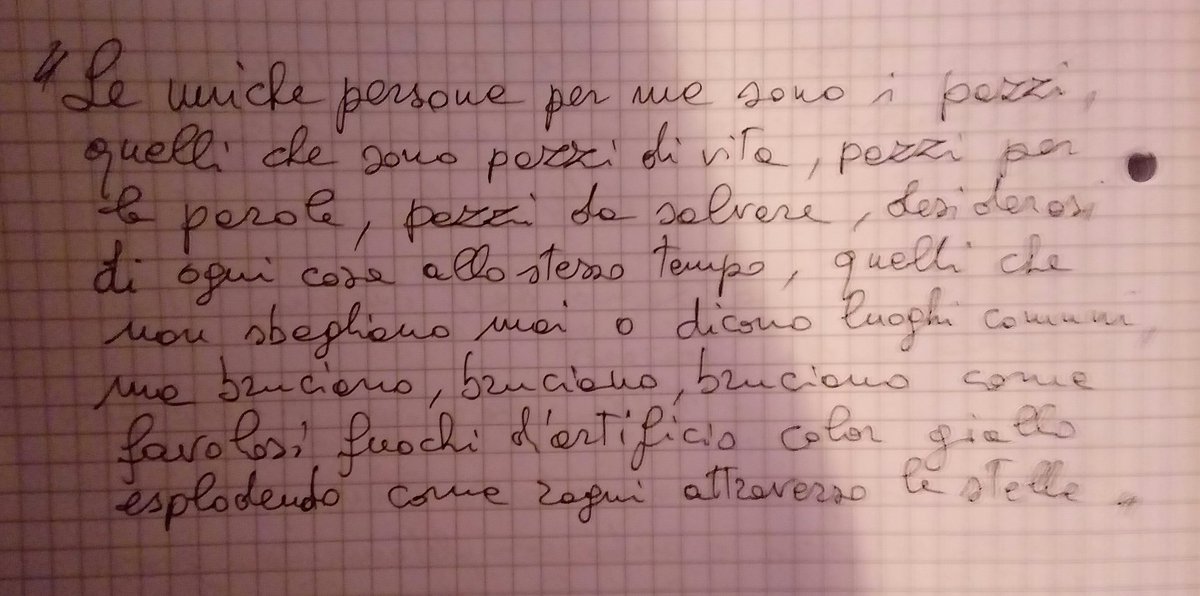 "Le uniche persone per me sono i pazzi,
quelli che sono pazzi di vita, pazzi per
le parole, pazzi da salvare, desiderosi
di ogni cosa allo stesso tempo, quelli che
non sbagliano mai o dicono luoghi comuni,
ma bruciano, bruciano, bruciano come
favolosi fuochi d'artificio color giallo
esplodendo come ragni attraverso le stelle"